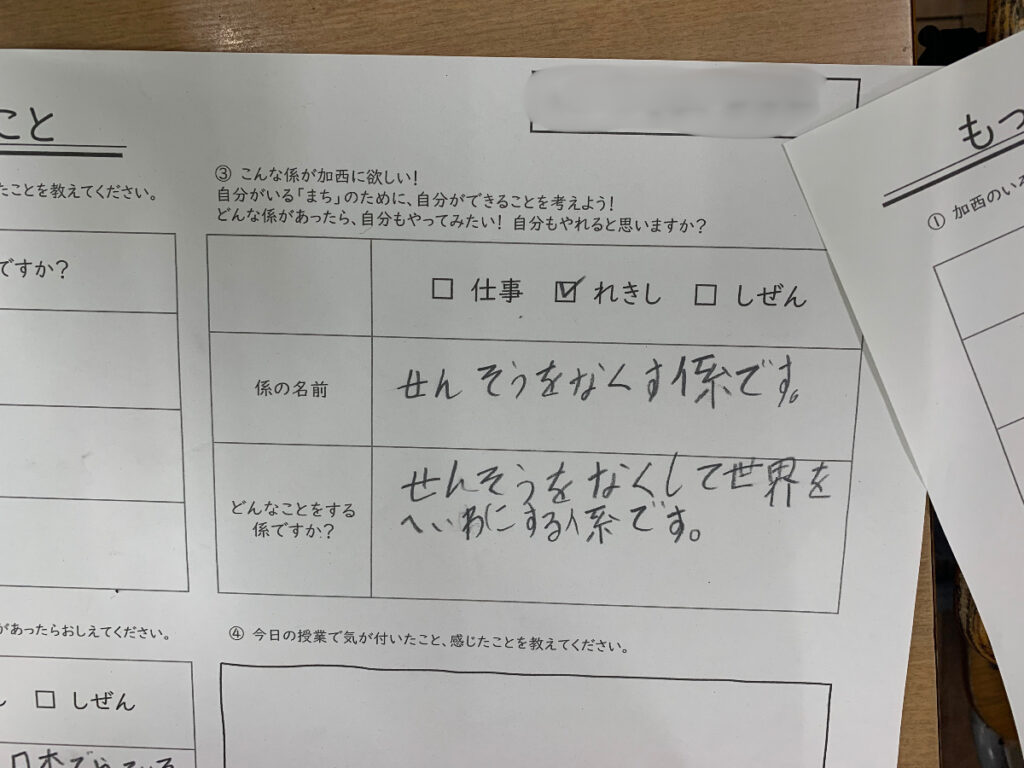 こと
たことを教えてください。
ですか？
があったらおしえてください。
□ しぜん
③ こんな係が加西に欲しい！
自分がいる「まち」のために、自分ができることを考えよう！
どんな係があったら、自分もやってみたい！ 自分もやれると思いますか？
□ 仕事 ☑ れきし □ しぜん
係の名前
せんそうをなくす係です。
どんなことをする
係ですか？
せんそうをなくして世界を
へいわにする係です。
④ 今日の授業で気が付いたこと、感じたことを教えてください。
もっ
① 加西のいろ